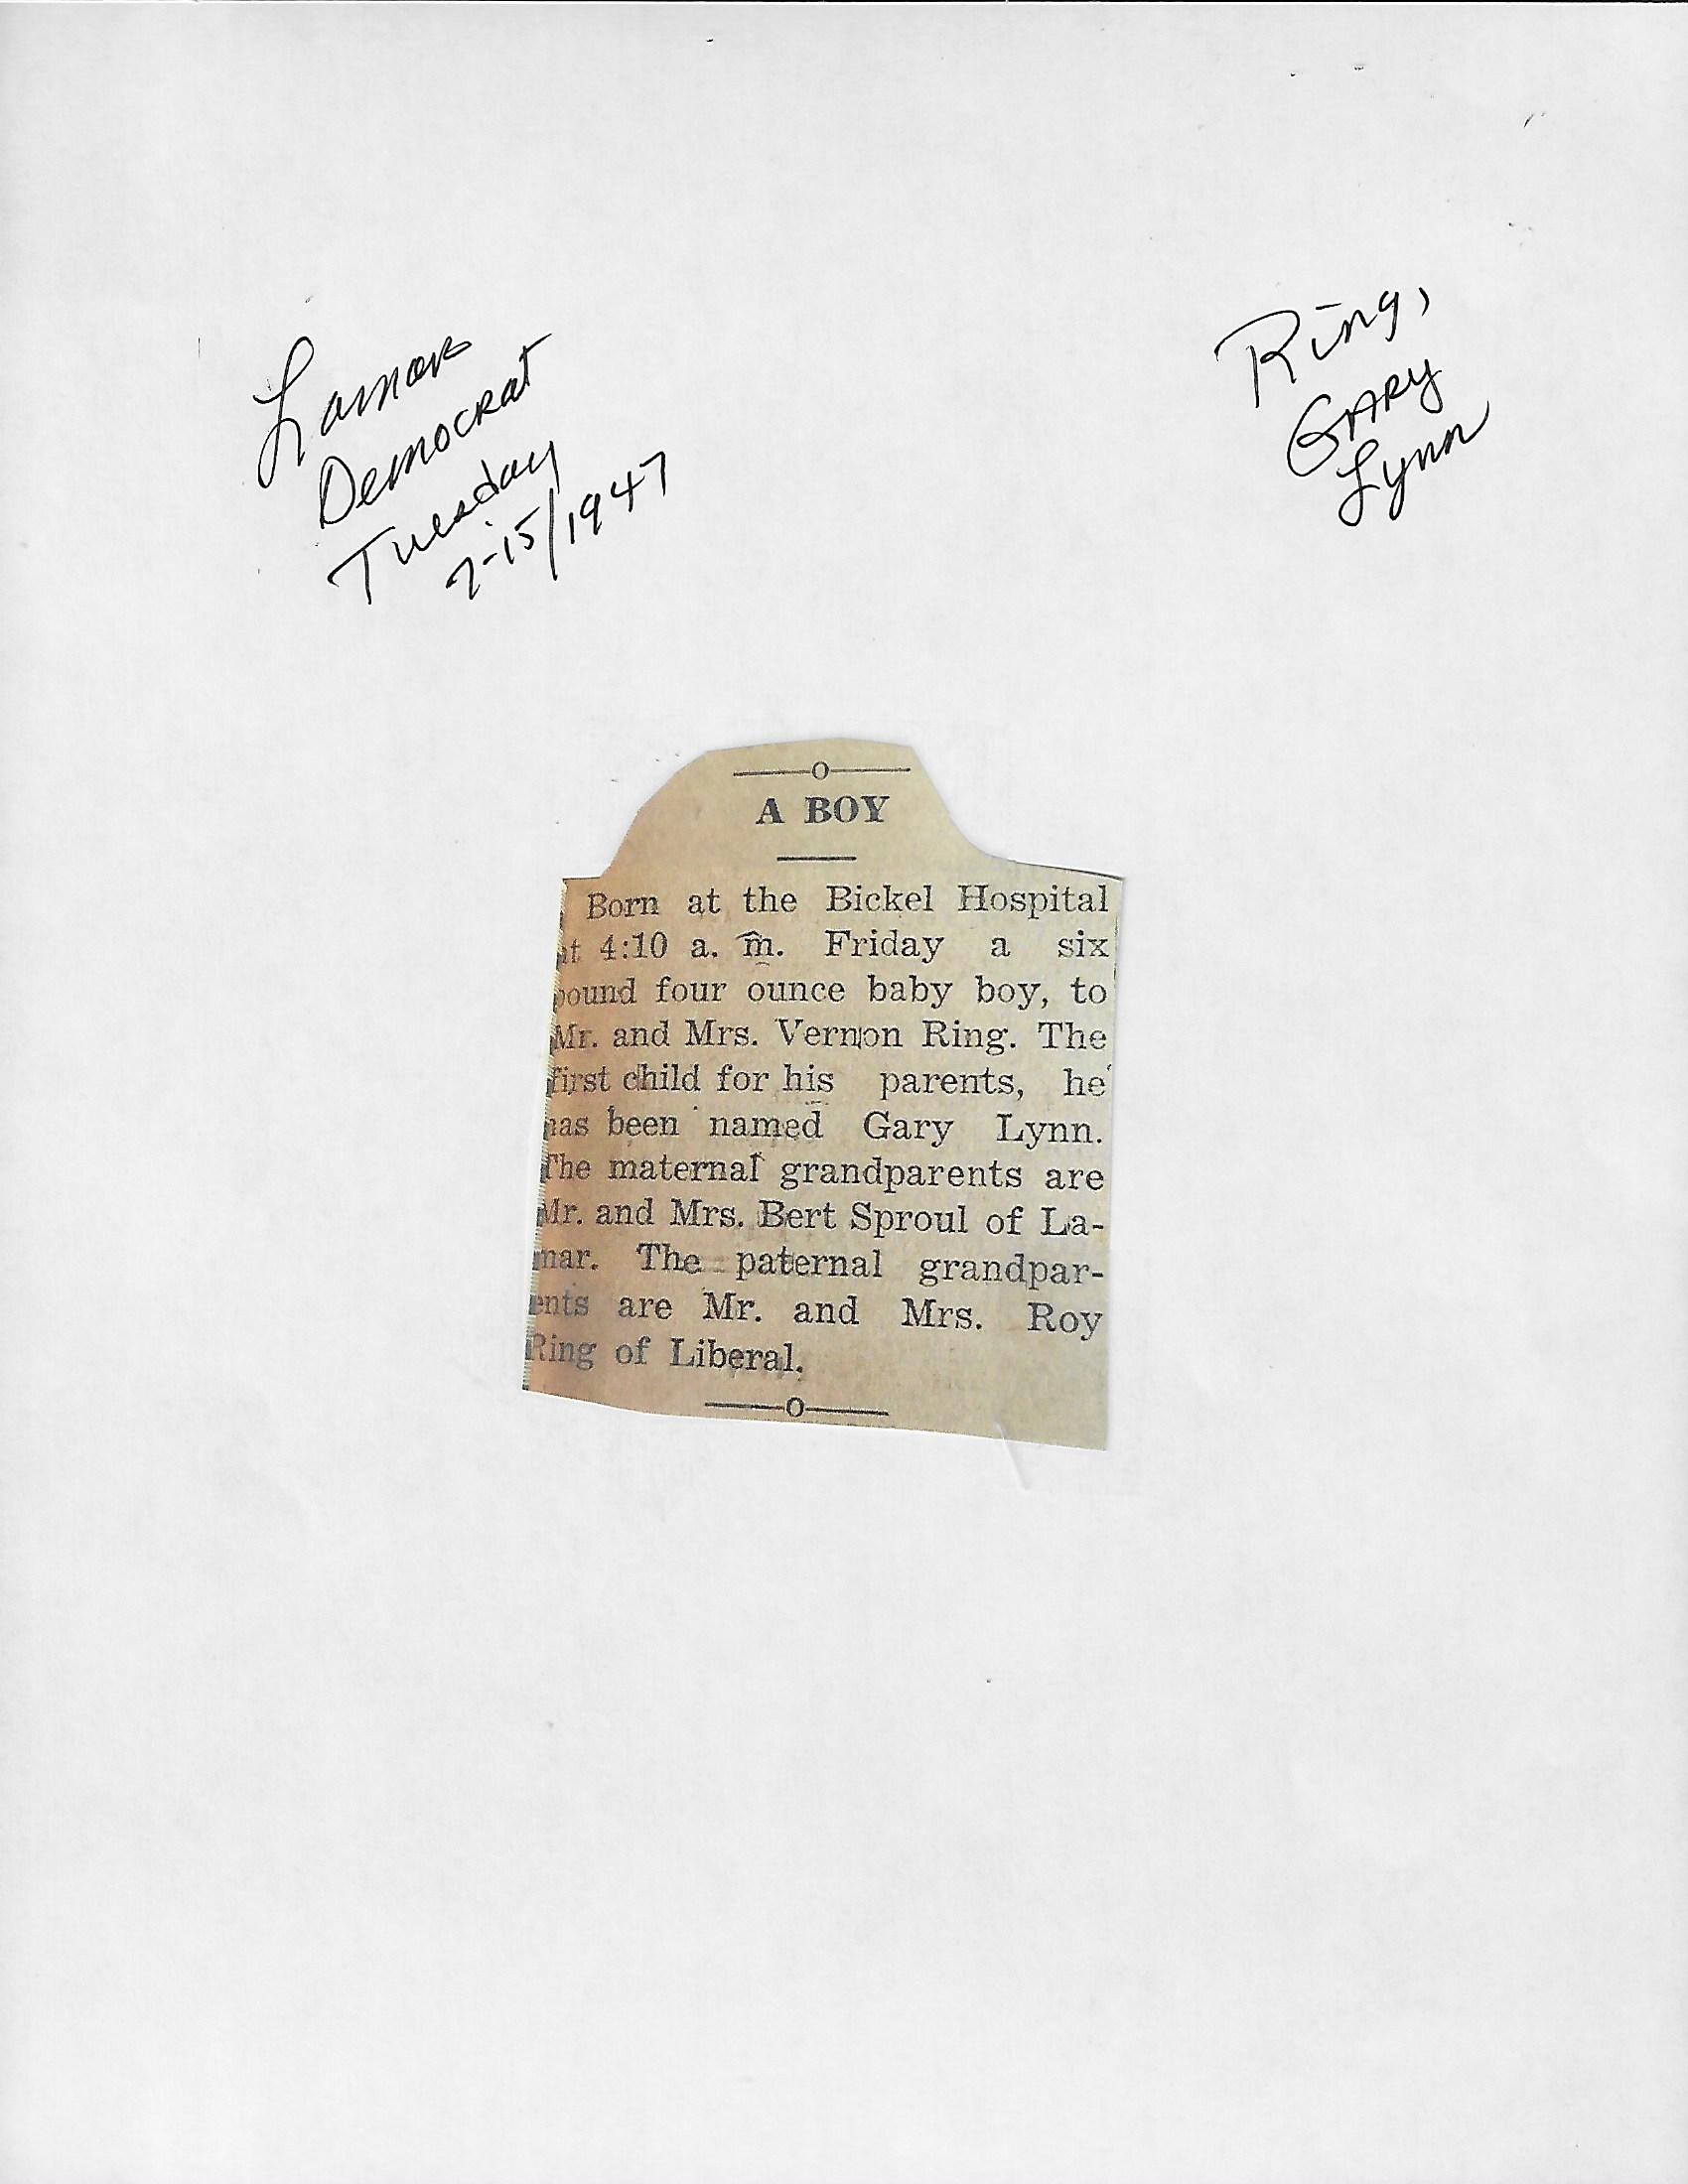 Lamar
Democrat
Tuesday
7-15/1947
Ring,
Gary
Lynn
A BOY
Born at the Bickel Hospital
at 4:10 a. m. Friday a six
pound four ounce baby boy, to
Mr. and Mrs. Vernon Ring. The
first child for his parents, he
has been named Gary Lynn.
The maternal grandparents are
Mr. and Mrs. Bert Sproul of La-
mar. The paternal grandpar-
ents are Mr. and Mrs. Roy
Ring of Liberal.